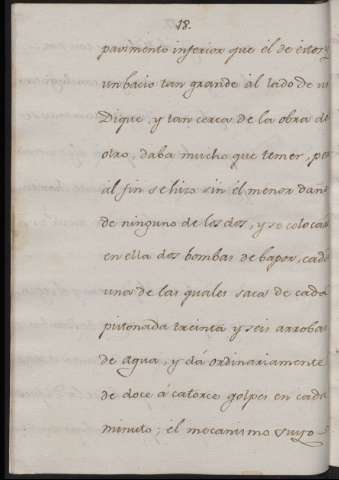 18.
pavimento inferior que él de éstos, y
un bacio tan grande al lado de un
Dique, y tan cerca de la obra de
otro, daba mucho que temer, pero
al fin se hizo sin él menor daño
de ninguno de los dos, y se colocan
en ella dos bombas de bapor, cada
una de las quales saca de cada
pistonada treinta y seis arrobas
de agua, y dá ordinariamente
de doce á catorce golpes en cada
minuto; el mecanismo suyo